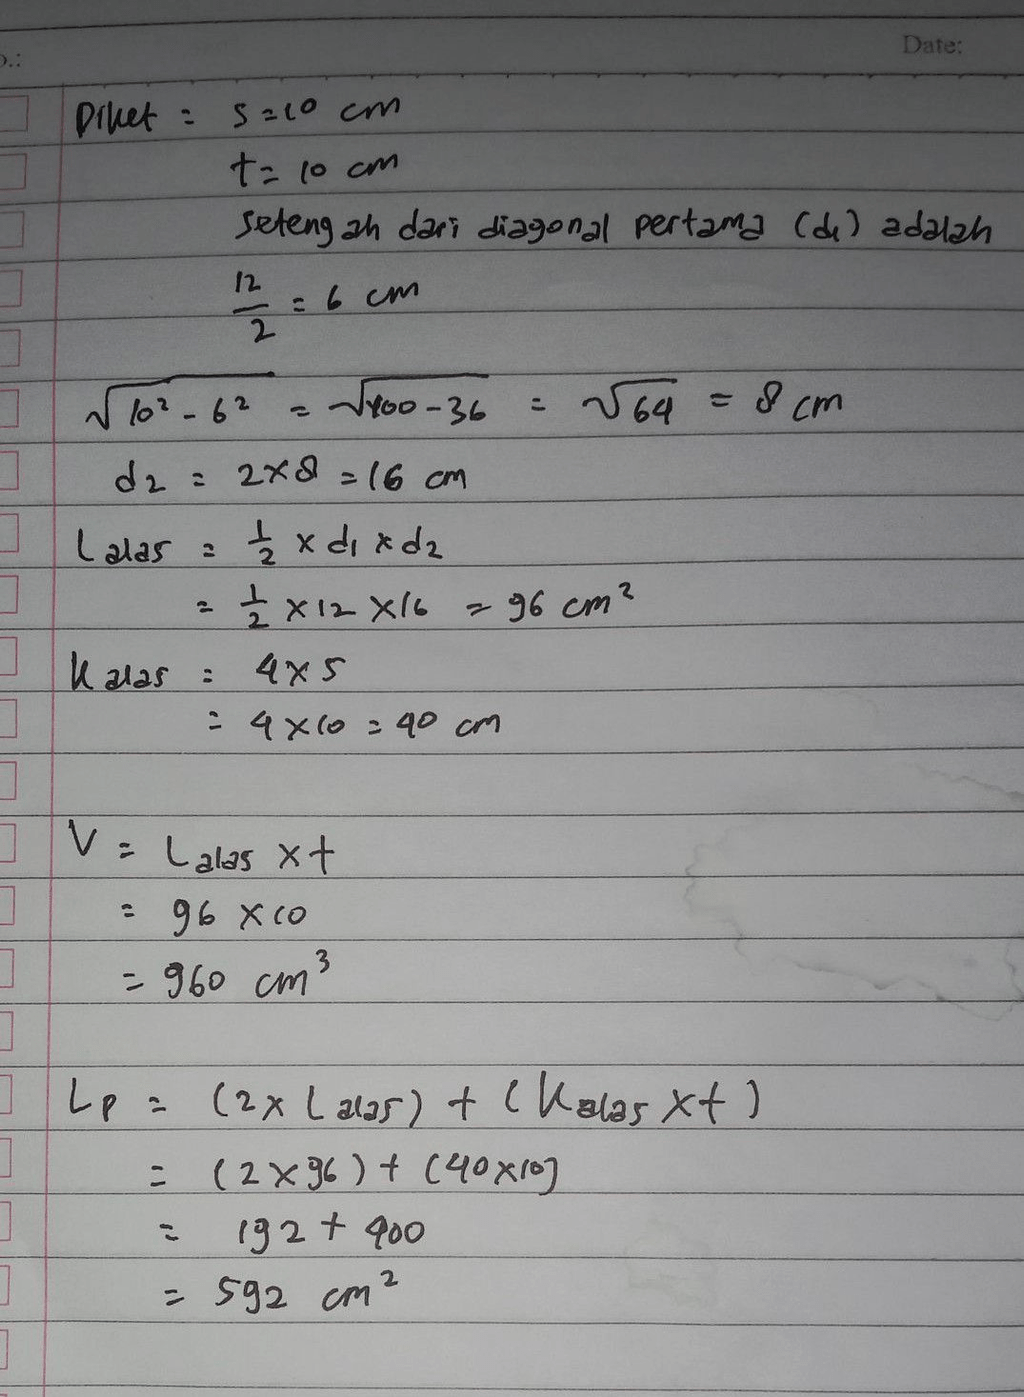 o.:
Date:
Diket = s = 10 cm
t = 10 cm
Setengah dari diagonal pertama (d1) adalah
12/2 = 6 cm
√10² - 6² = √100 - 36 = √64 = 8 cm
d2 = 2 x 8 = 16 cm
L alas = 1/2 x d1 x d2
= 1/2 x 12 x 16 = 96 cm²
K alas = 4 x s
= 4 x 10 = 40 cm
V = L alas x t
= 96 x 10
= 960 cm³
Lp = (2 x L alas) + (K alas x t)
= (2 x 96) + (40 x 10)
= 192 + 400
= 592 cm²